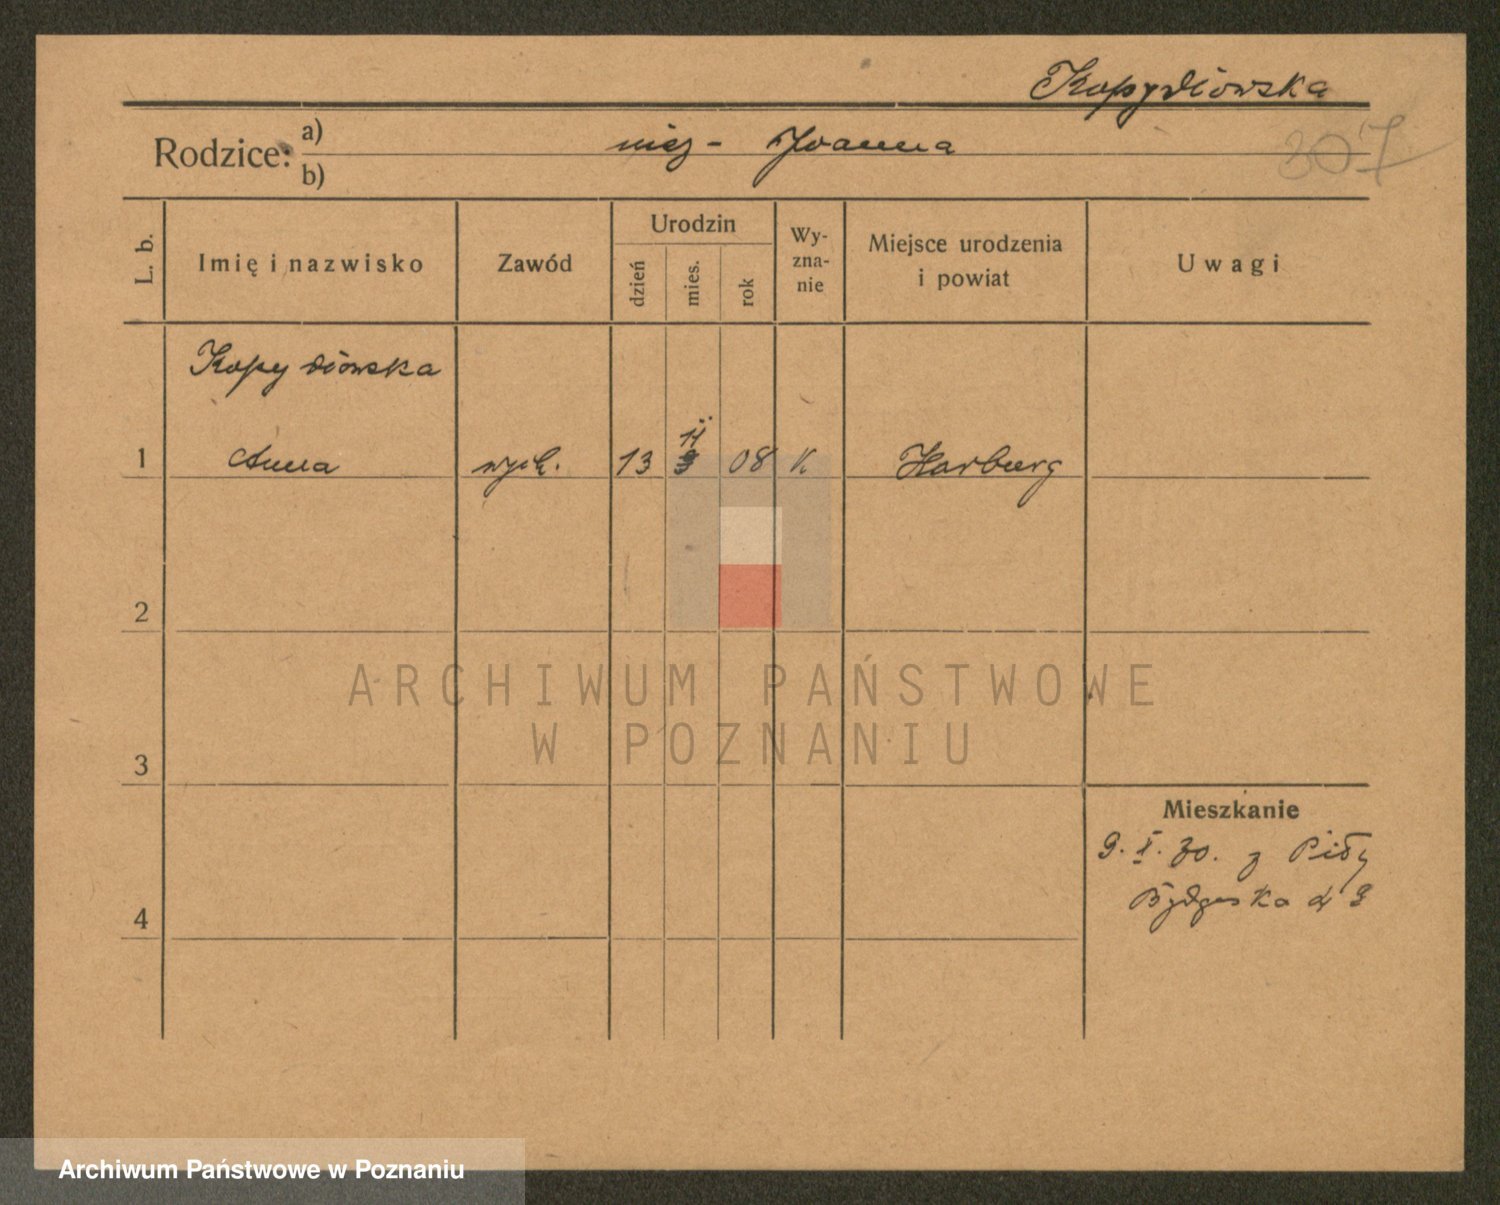 Kopydłowska
Rodzice: a) niez - Joanna
b)
307
L. b.
Imię i nazwisko
Zawód
Urodzin
dzień
mies.
rok
Wy-
zna-
nie
Miejsce urodzenia
i powiat
Uwagi
Kopydłowska
1 Anna wych. 13 08 K Harburg
2
3
4
Mieszkanie
9. X. 30. z Piły
Bydgoska
ARCHIWUM PAŃSTWOWE
W POZNANIU
Archiwum Państwowe w Poznaniu